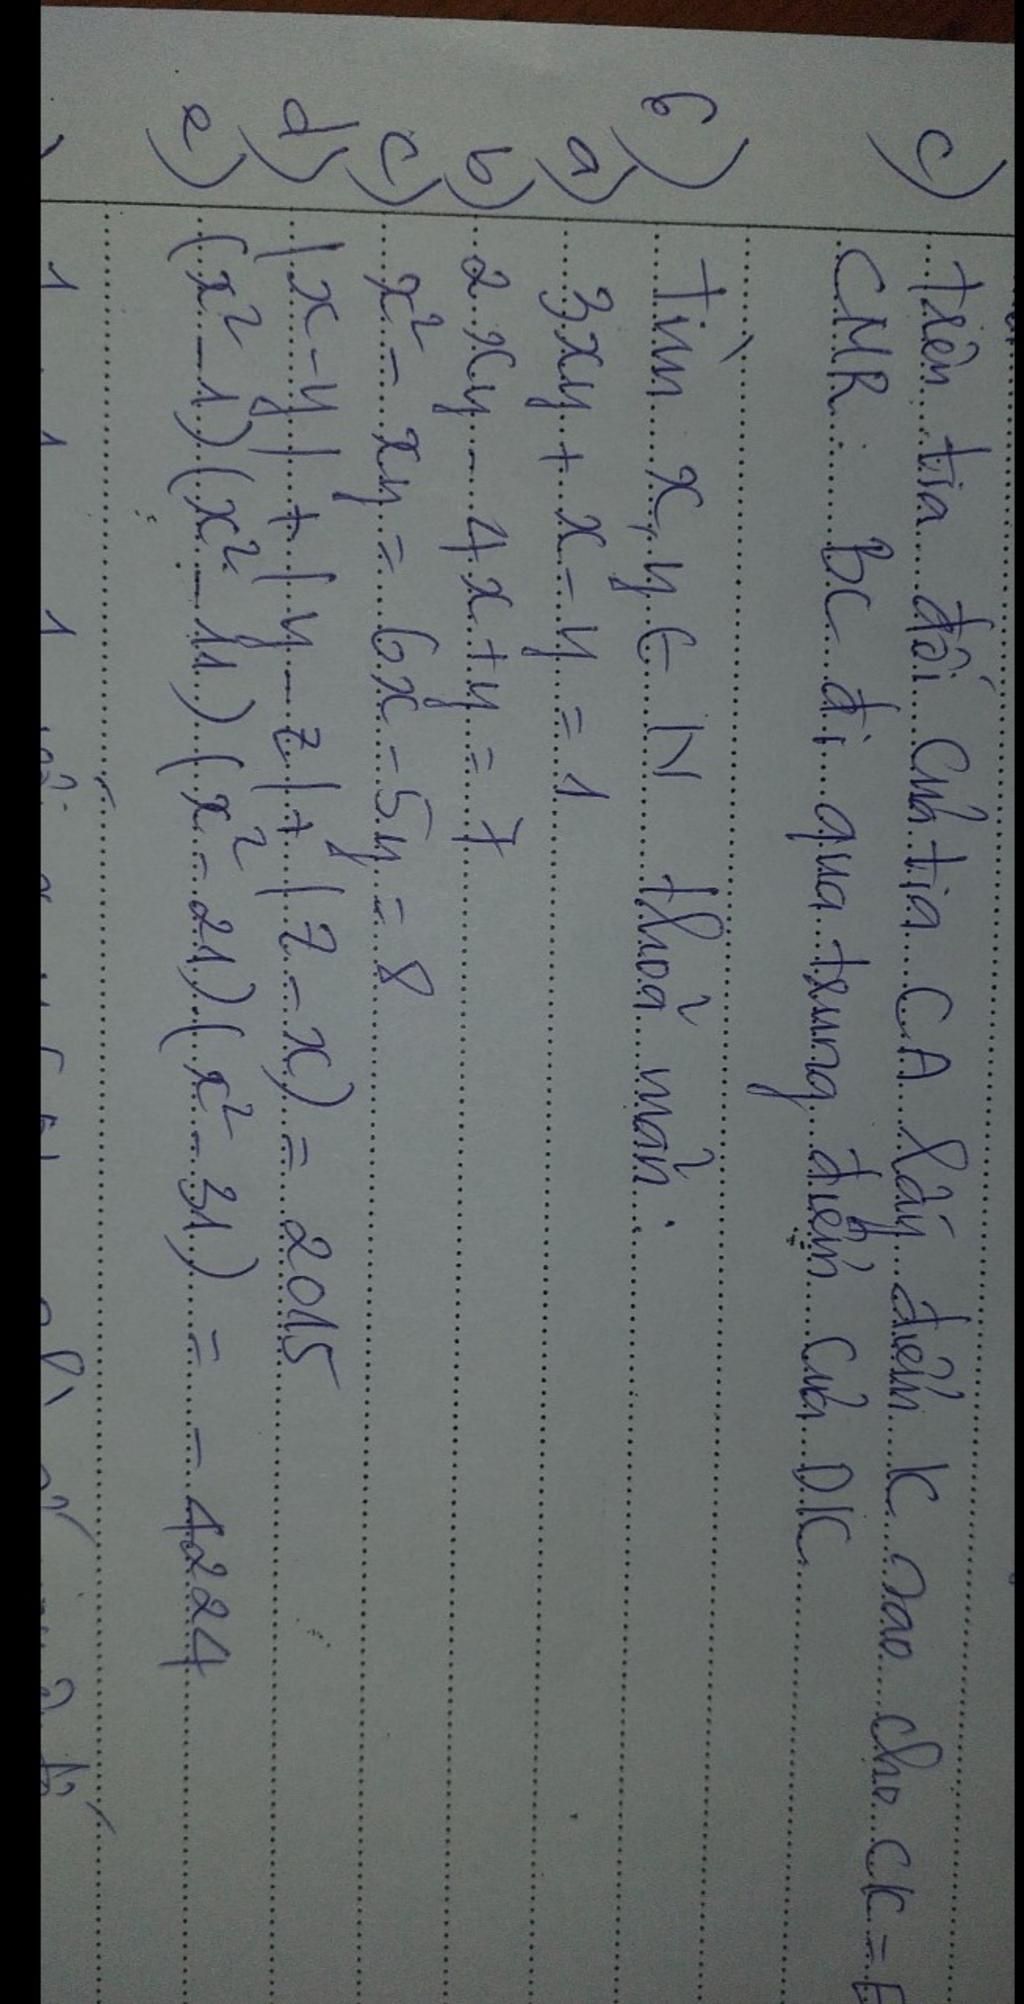 c) Trên tia đối của tia CA lấy điểm K sao cho CK =
CMR: BC đi qua trung điểm của DK
6) Tìm x, y ∈ N thoả mãn:
a) 3xy + x - y = 1
b) 2xy - 4x + y = 7
c) x² - xy = 6x - 5y = 8
d) |x-y| + |y-z| + |z-x) = 2015
e) (x²-1)(x²-11)(x²-21)(x²-31) = -4224